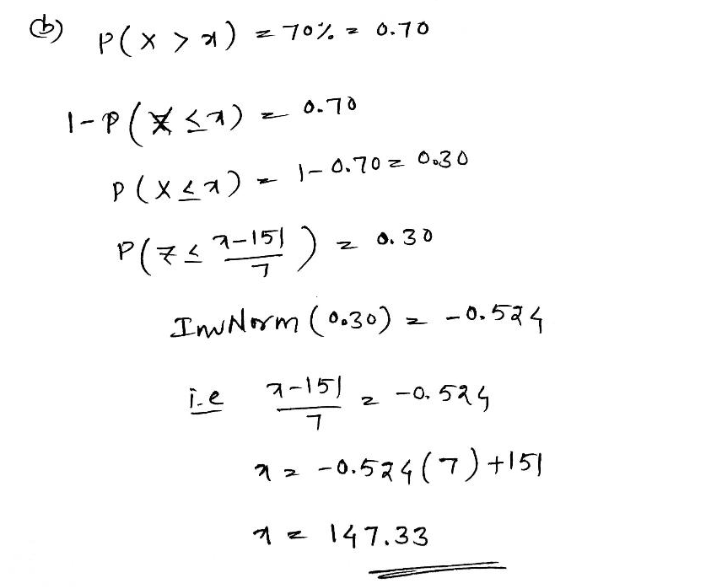 (b) P(X > x) = 70% = 0.70
1 - P(X ≤ x) = 0.70
P(X ≤ x) = 1 - 0.70 = 0.30
P(Z ≤ (x-151)/7) = 0.30
InvNorm (0.30) = -0.524
i.e (x-151)/7 = -0.524
x = -0.524(7)+151
x = 147.33